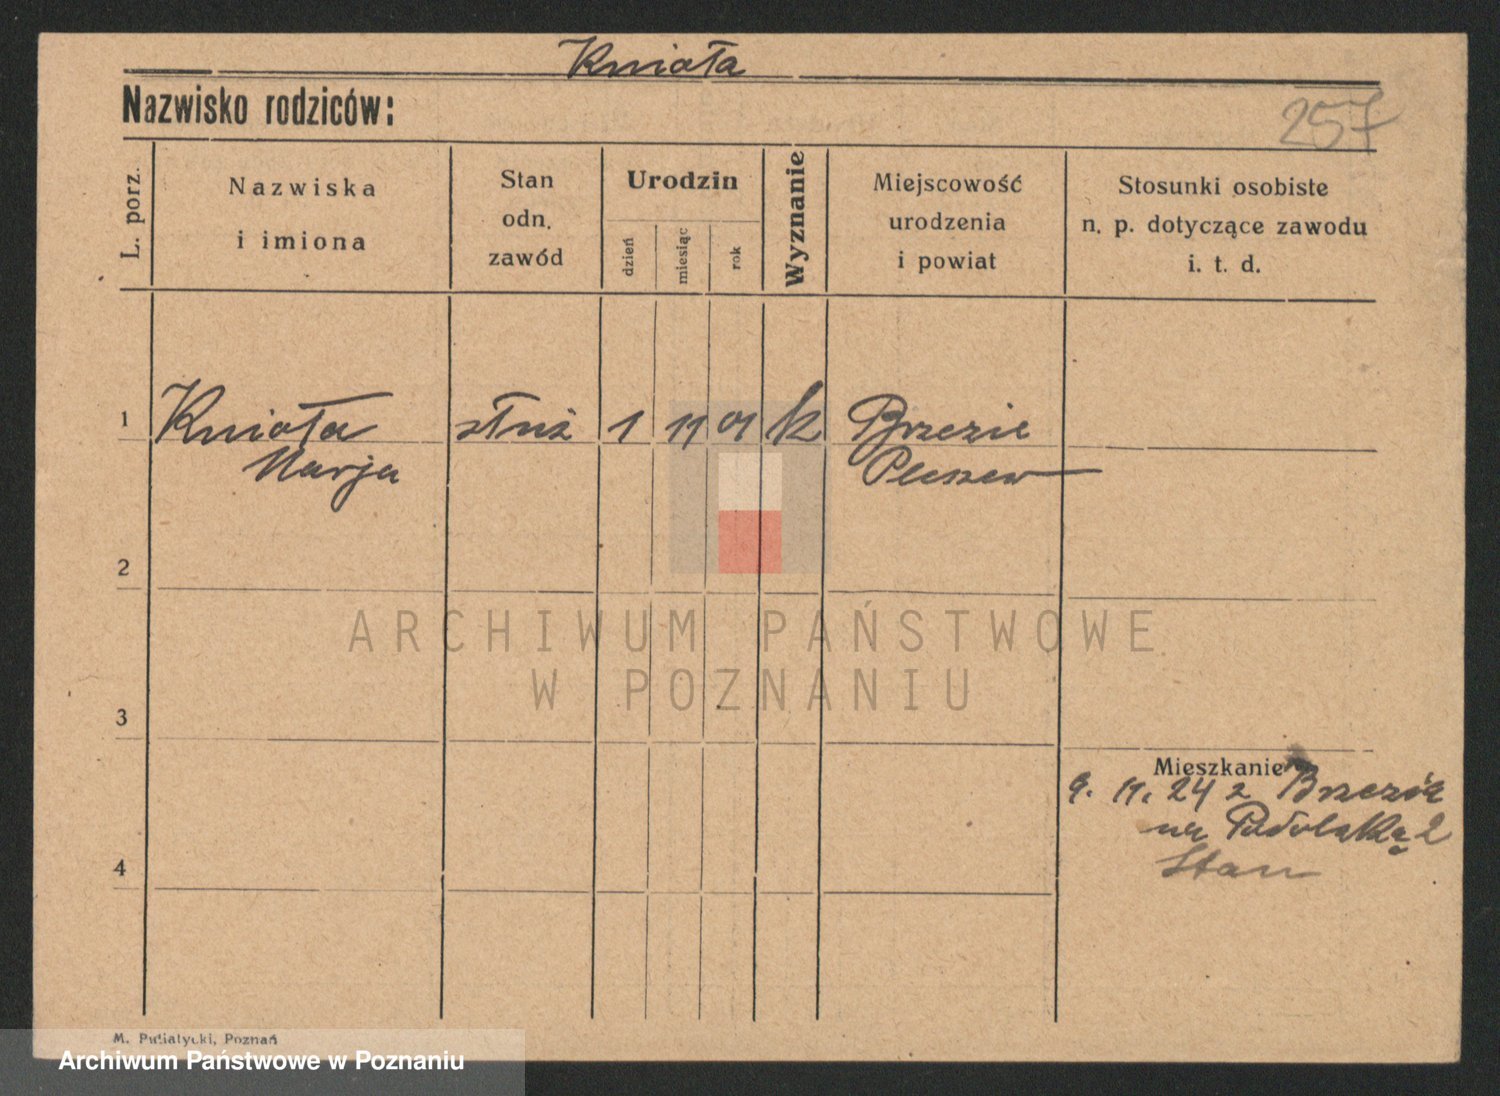 Knioła
Nazwisko rodziców:
257
L. porz.
Nazwiska
i imiona
Stan
odn.
zawód
Urodzin
dzień
miesiąc
rok
Wyznanie
Miejscowość
urodzenia
i powiat
Stosunki osobiste
n. p. dotyczące zawodu
i. t. d.
1 Knioła służ 1 11 01 k Brzezie
Marja Pleszew
2
ARCHIWUM PAŃSTWOWE
W POZNANIU
3
Mieszkanie
9. 11. 24 z Brzezia
na Podolską 2
Stan
4
M. Putiatycki, Poznań
Archiwum Państwowe w Poznaniu